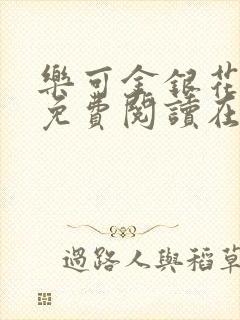 樂可金銀花
免費閱讀在
過路人與稻草